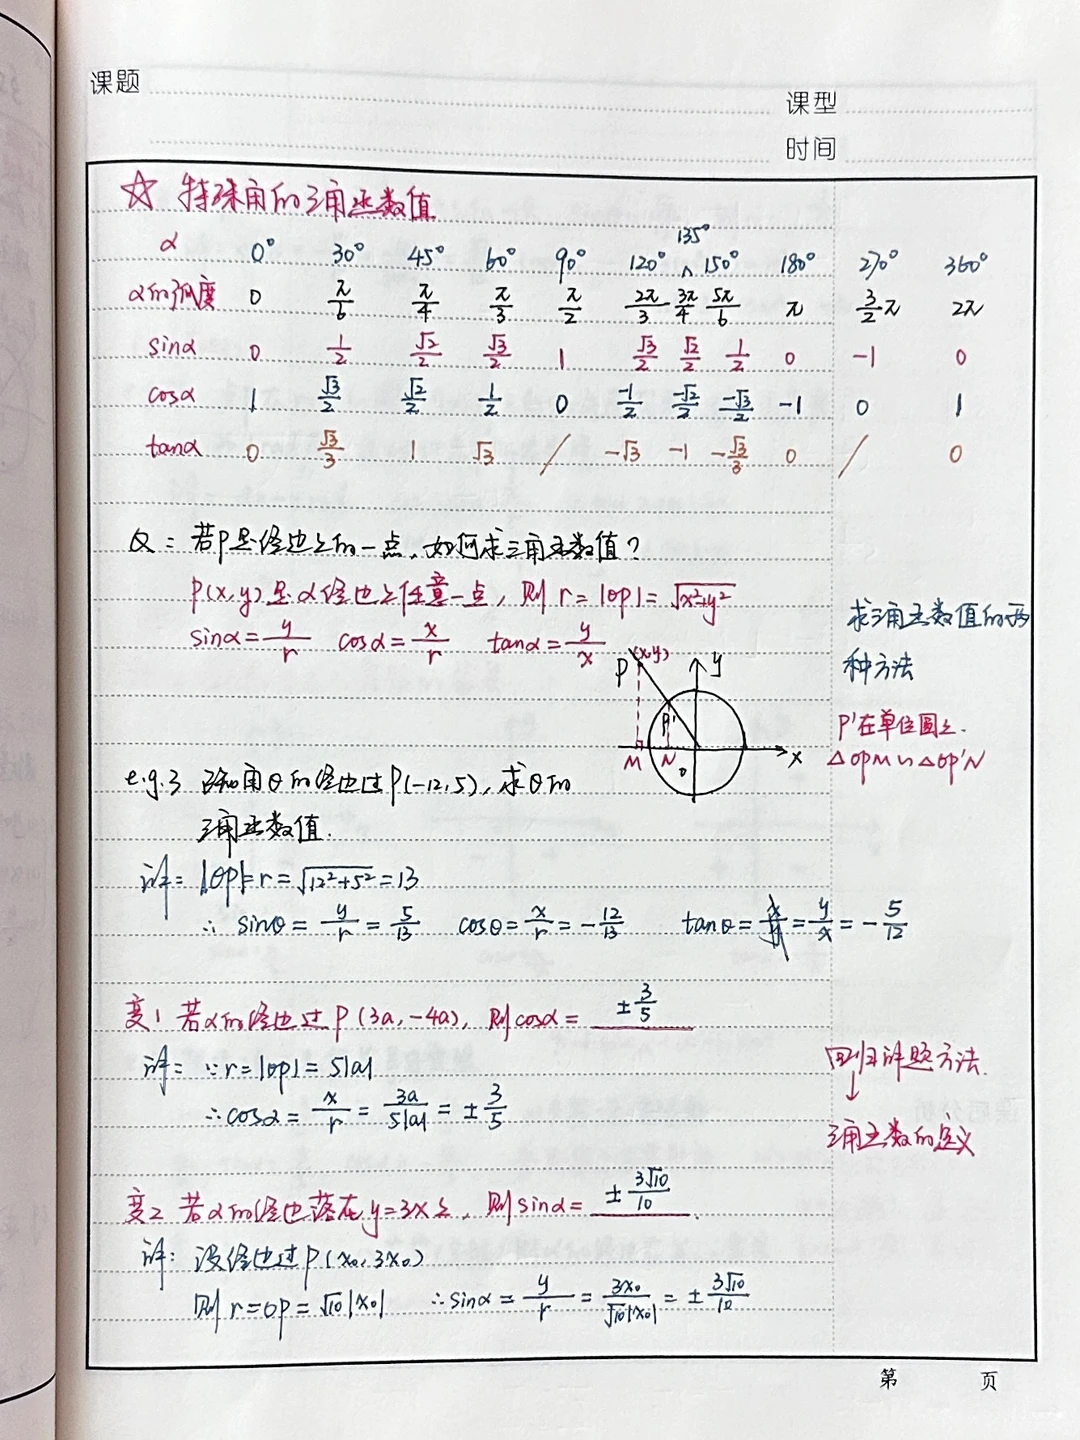 课题
课型
时间
☆ 特殊角的三角函数值
α 0° 30° 45° 60° 90° 120° 135° 150° 180° 270° 360°
α的弧度 0 π/6 π/4 π/3 π/2 2π/3 3π/4 5π/6 π 3/2π 2π
sinα 0 1/2 √2/2 √3/2 1 √3/2 √2/2 1/2 0 -1 0
cosα 1 √3/2 √2/2 1/2 0 -1/2 -√2/2 -√3/2 -1 0 1
tanα 0 √3/3 1 √3 / -√3 -1 -√3/3 0 / 0
Q: 若P是终边上的一点,如何求三角函数值?
P(x,y)是α终边上任意一点,则 r=|OP|=√x²+y²
sinα=y/r cosα=x/r tanα=y/x
求三角函数值的两
种方法
P (x,y) y
P'
M N O x
P'在单位圆上.
△OPM∽△OP'N
e.g.3 已知角θ的终边过P(-12,5),求θ的
三角函数值.
解: |OP|=r=√12²+5²=13
∴ sinθ=y/r=5/13 cosθ=x/r=-12/13 tanθ=x/y=y/x=-5/12
变1 若α的终边过P(3a,-4a),则cosα=±3/5
解: ∵r=|OP|=5|a|
∴cosα=x/r=3a/5|a|=±3/5
回归解题方法.
↓
三角函数的定义
变2 若α的终边落在y=3x上,则sinα=±3√10/10.
解: 设终边过P(x₀,3x₀)
则r=OP=√10|x₀| ∴sinα=y/r=3x₀/√10|x₀|=±3√10/10
第 页